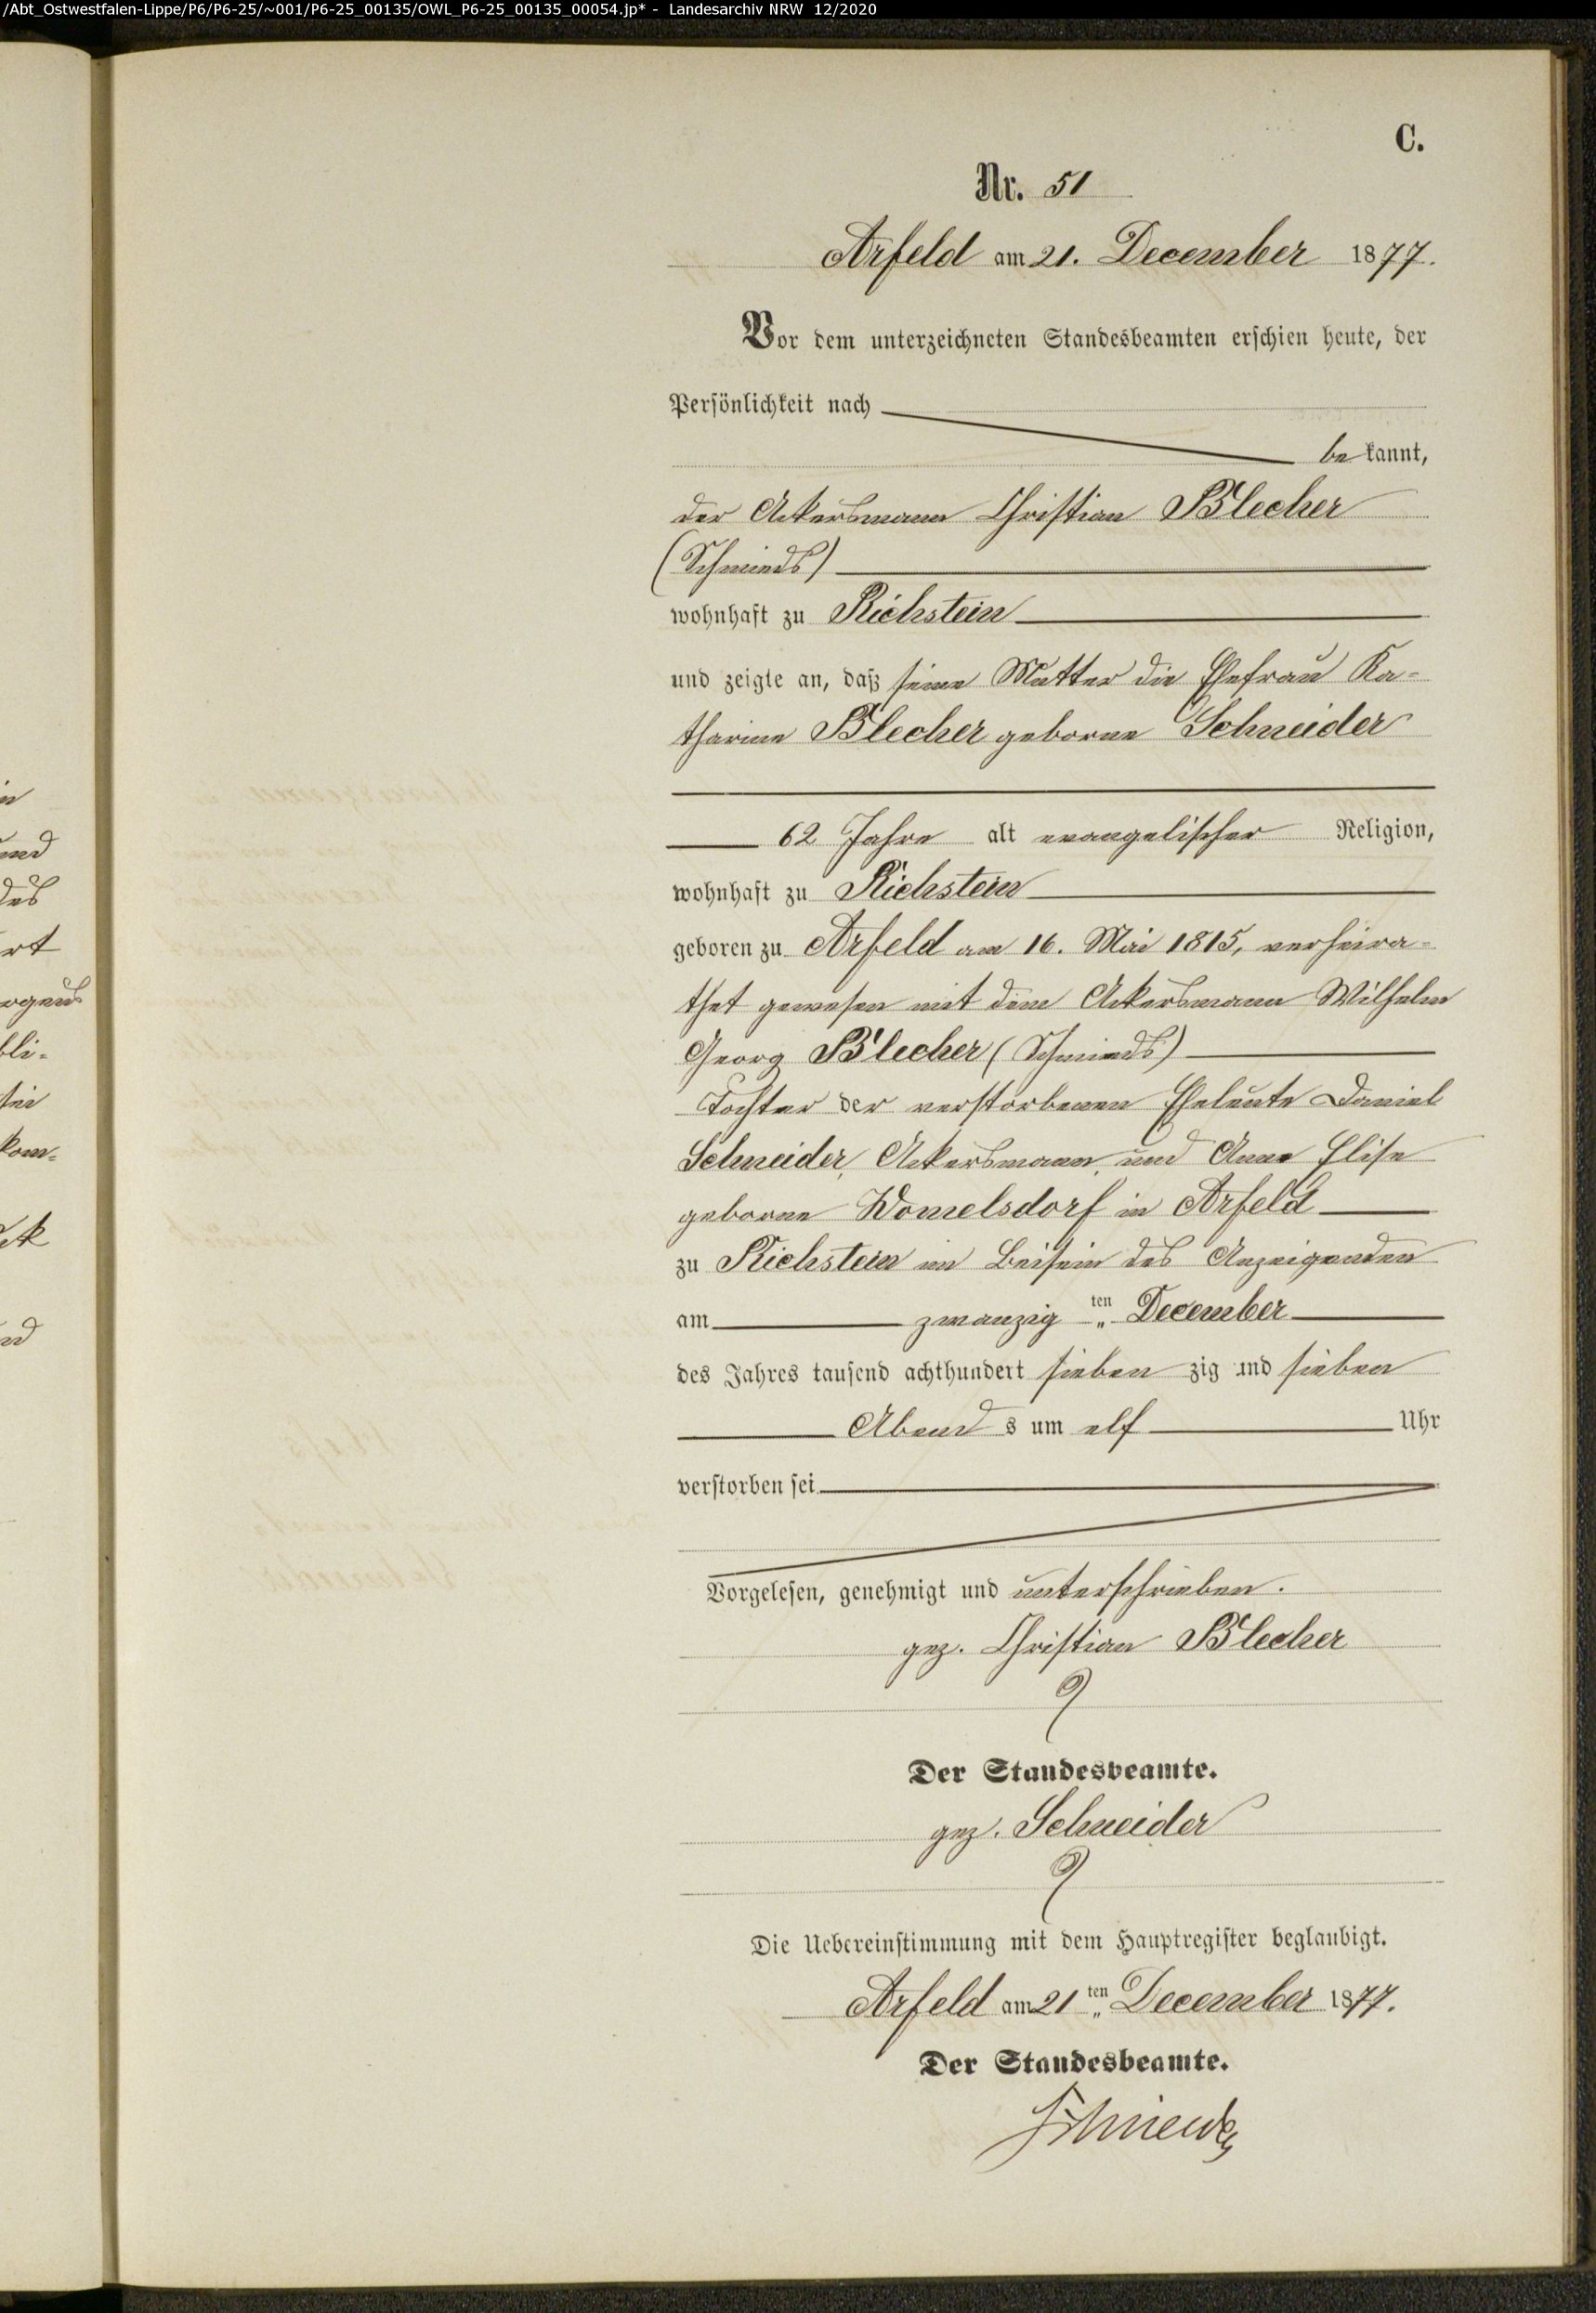 /Abt_Ostwestfalen-Lippe/P6/P6-25/~001/P6-25_00135/OWL_P6-25_00135_00054.jp* - Landesarchiv NRW 12/2020
C.
Nr. 51
Arfeld am 21. December 1877.
Vor dem unterzeichneten Standesbeamten erschien heute, der
Persönlichkeit nach
be kannt,
der Ackersmann Christian Blecher
(Schmieds)
wohnhaft zu Richstein
und zeigte an, daß seine Mutter die Ehefrau Ka-
tharine Blecher geborne Schneider
62 Jahre alt evangelischer Religion,
wohnhaft zu Richstein
geboren zu Arfeld am 16. Mai 1815, verheira-
thet gewesen mit dem Ackersmann Wilhelm
Georg Blecher (Schmieds)
Tochter der verstorbenen Eheleute Daniel
Schneider, Ackersmann, und Anne Elise
geborne Womelsdorf in Arfeld
zu Richstein im Beisein des Anzeigenden
am zwanzig ten December
des Jahres tausend achthundert sieben zig und sieben
Abend s um elf Uhr
verstorben sei
Vorgelesen, genehmigt und unterschrieben.
gez. Christian Blecher
Der Standesbeamte.
gez. Schneider
Die Uebereinstimmung mit dem Hauptregister beglaubigt.
Arfeld am 21 ten December 1877.
Der Standesbeamte.
Schneider
in
und
des
rt
orgens
bli-
kom-
ck
nd